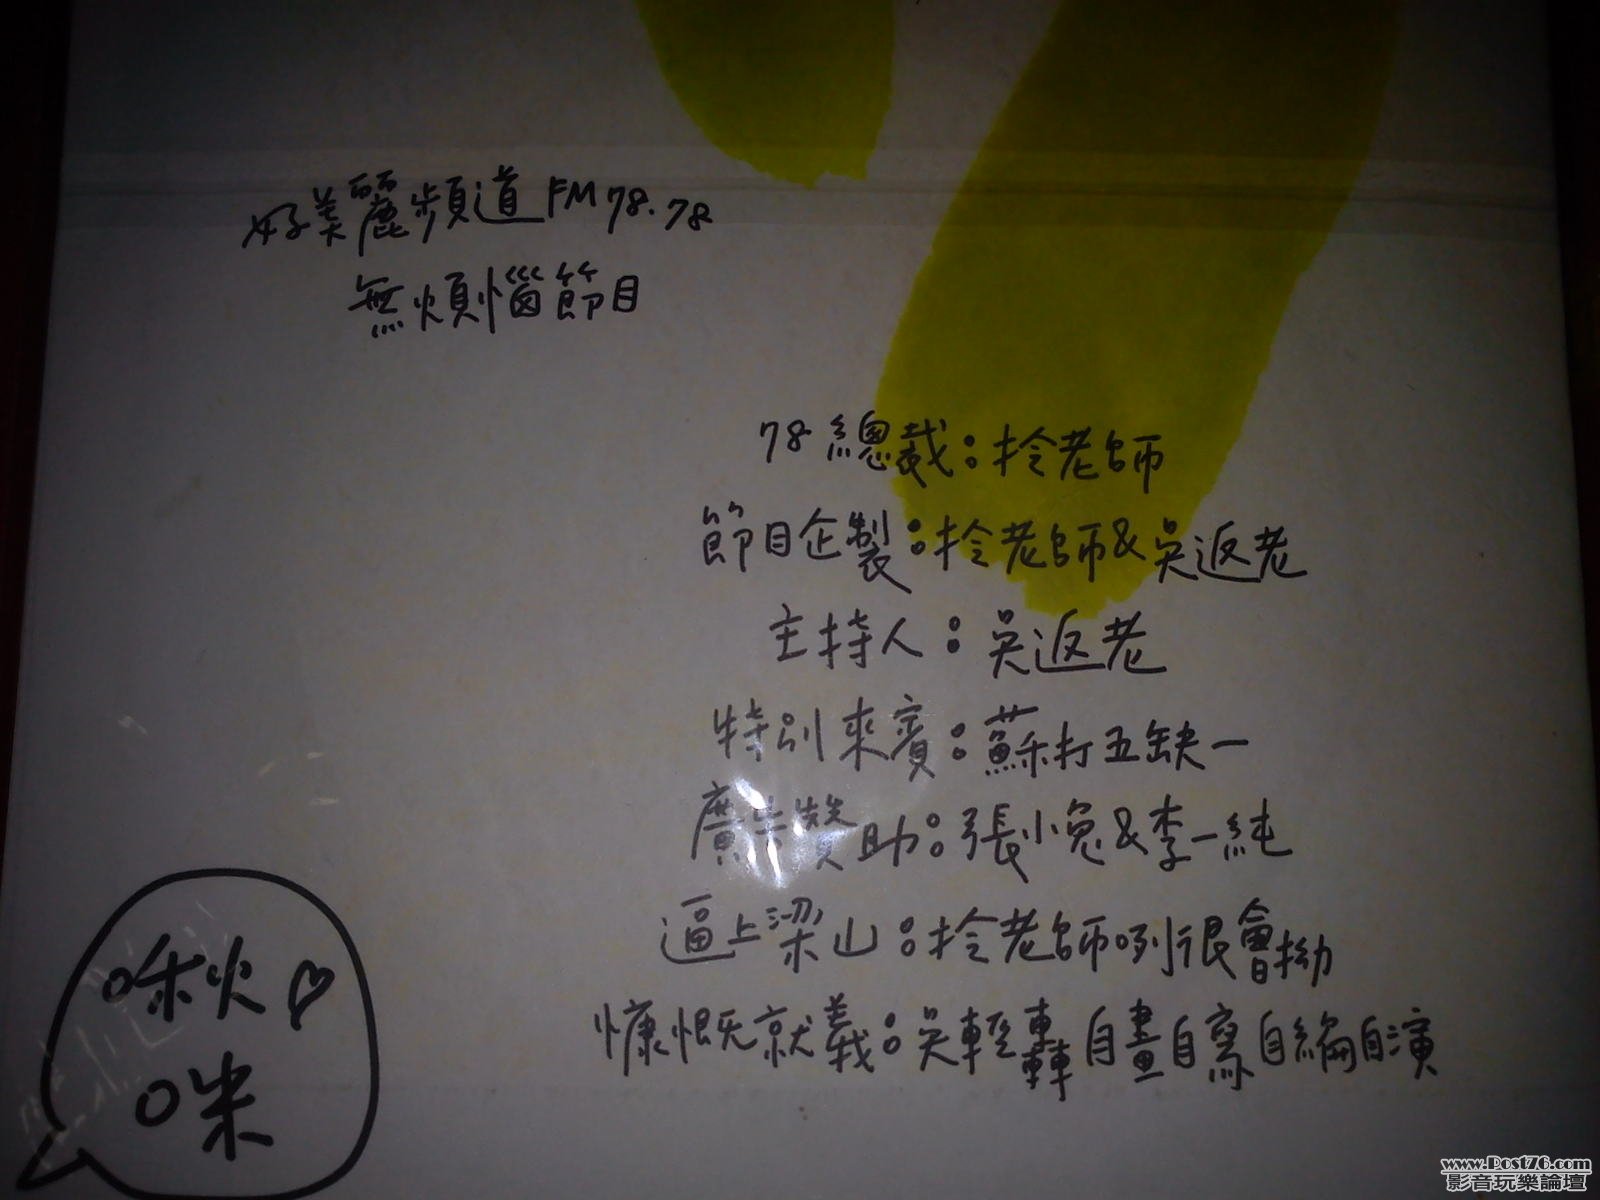 好美麗頻道FM78.78
無煩惱節目
78總裁:拎老師
節目企製:拎老師&吳返老
主持人:吳返老
特別來賓:蘇打五缺一
廣告贊助:張小兔&李一純
逼上梁山:拎老師咧很會拗
慷慨就義:吳輕轟自畫自寫自編自演
啾♡
咪
www.Post76.com
影音玩樂論壇